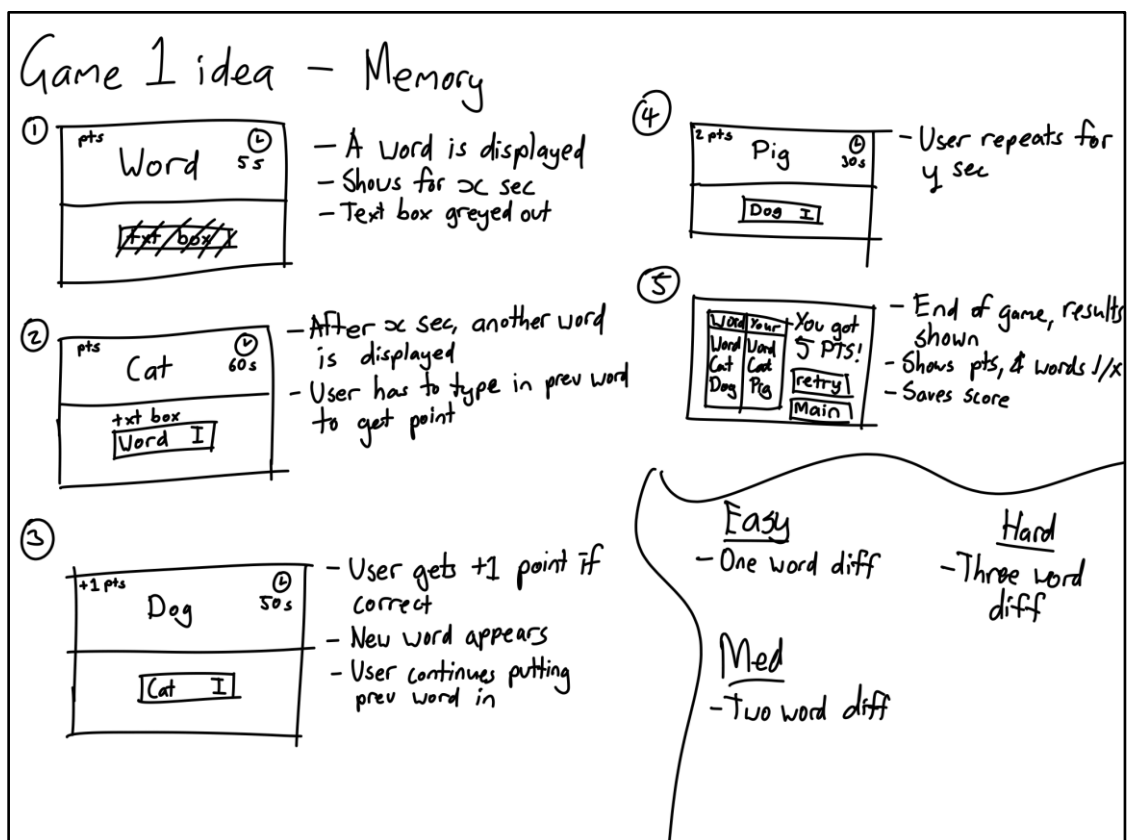 Game 1 idea - Memory
①
pts
Word
5s
txt box
- A word is displayed
- Shows for x sec
- Text box greyed out
②
pts
Cat
60s
txt box
Word I
- After x sec, another word
is displayed
- User has to type in prev word
to get point
③
+1 pts
Dog
50s
Cat I
- User gets +1 point if
correct
- New word appears
- User continues putting
prev word in
④
2 pts
Pig
30s
Dog I
- User repeats for
y sec
⑤
Word Your
Word Word
Cat Cat
Dog Pig
You got
5 PTS!
retry
Main
- End of game, results
shown
- Shows pts, & words ✓/x
- Saves score
Easy
- One word diff
Hard
- Three word
diff
Med
- Two word diff